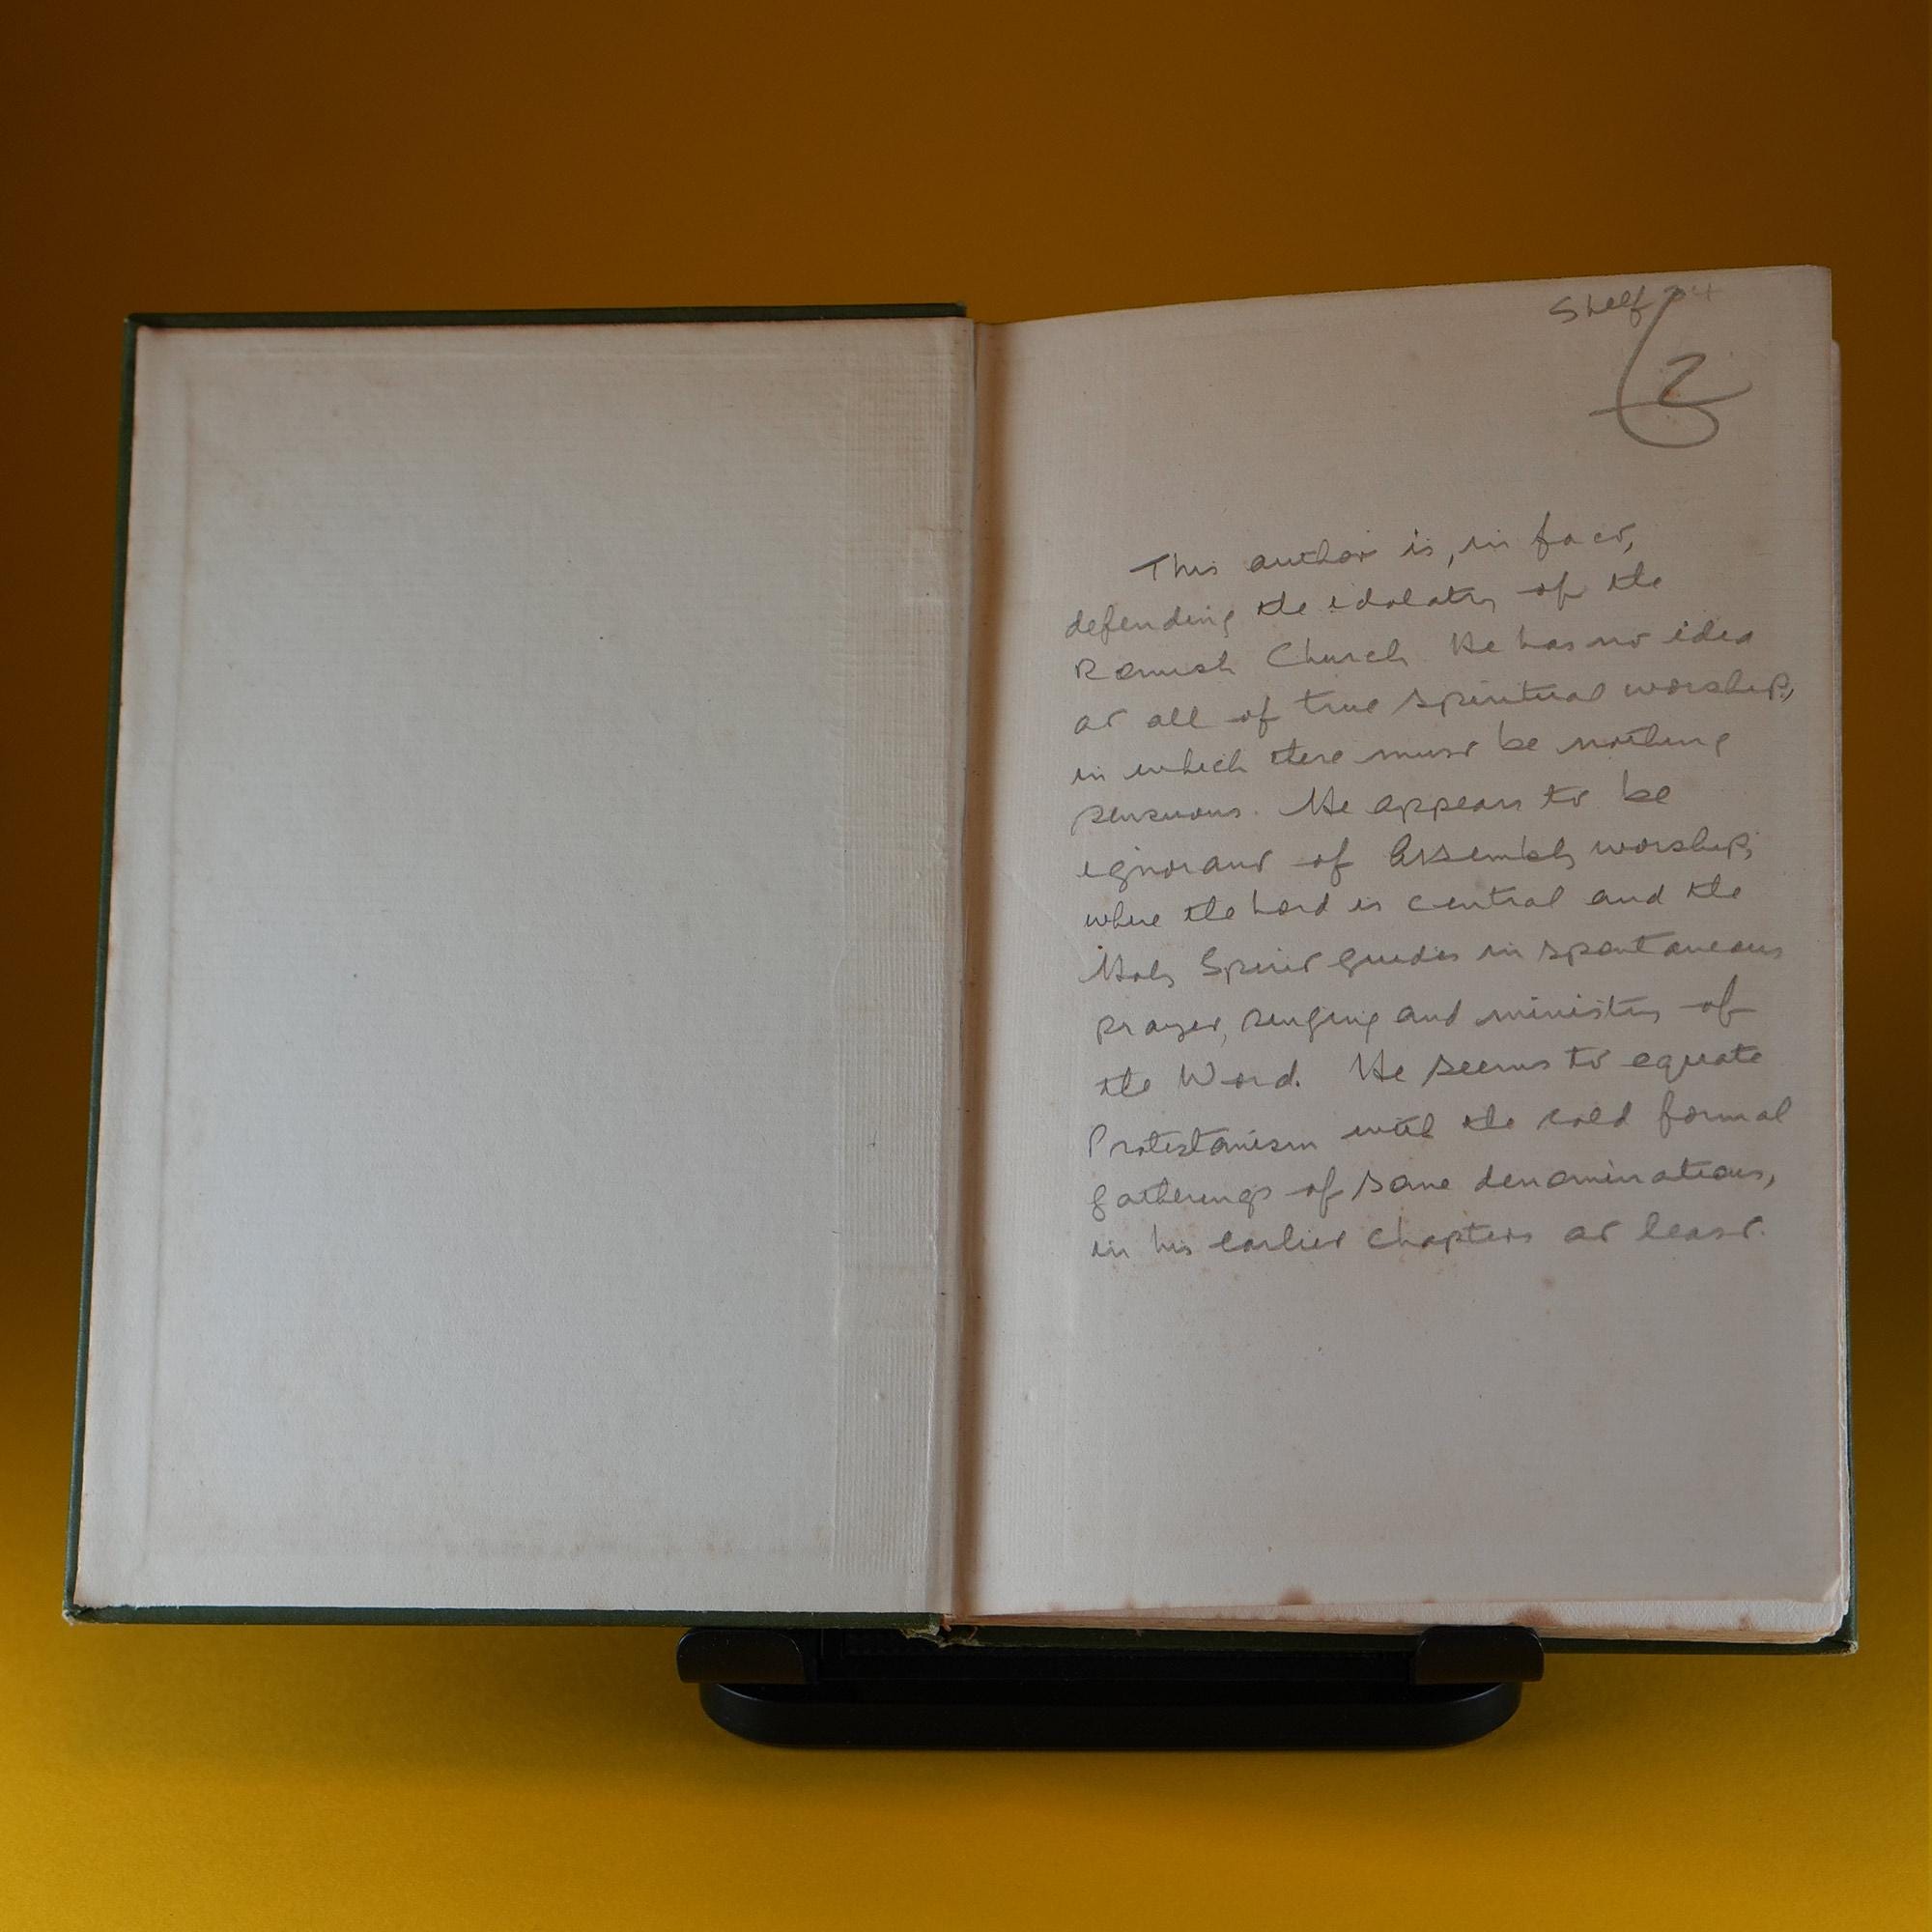 Shelf
2
This author is, in fact,
defending the idolatry of the
Romish Church. He has no idea
at all of true spiritual worship,
in which there must be nothing
sensuous. He appears to be
ignorant of Assembly worship,
where the Lord is central and the
Holy Spirit guides in spontaneous
prayer, singing and ministry of
the Word. He seems to equate
Protestanism with the cold formal
gatherings of some denominations,
in his earlier chapters at least.